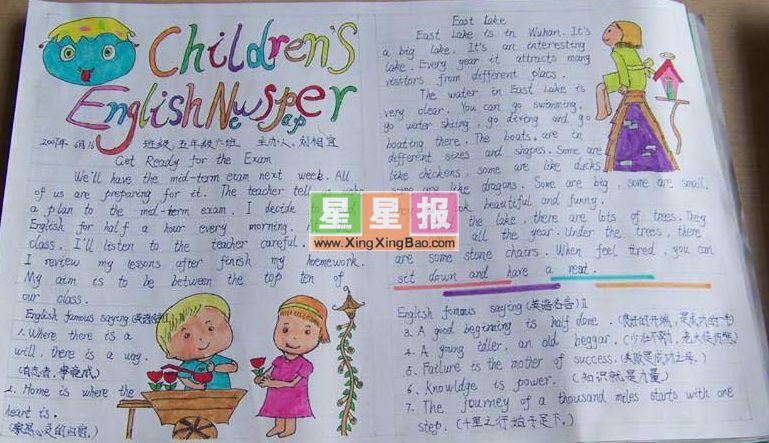 Children's
English Newspaper
2007年 6月16 班级,五年级六班 主办人,刘相宜
Get Ready for the Exam
We'll have the mid-term exam next week. All
of us are preparing for it. The teacher tell us
a plan to the mid-term exam. I decide to
English for half a hour every morning.
class. I'll listen to the teacher careful.
I review my lessons after finish my homework.
My aim is to be between the top ten of
our class.
English famous saying (英语名言) I
1. Where there is a
will, there is a way.
(有志者,事竟成)
2. Home is where the
heart is.
East Lake
East Lake is in Wuhan. It's
a big lake. It's an interesting
lake. Every year it attracts many
visitors from different placs.
The water in East Lake is
very clear. You can go swimming,
go water skiing, go diving and go
boating there. The boats are in
different sizes and shapes. Some are
like chickens, some are like ducks
some are like dragons. Some are big, some are small.
look beautiful and funny.
the lake, there are lots of trees. They
all the year. Under the trees, there
are some stone chairs. When feel tired, you can
sit down and have a rest.
English famous saying (英语名言) II
3. A good beginning is half done. (良好的开端,是成功的一半)
4. A young idler, an old beggar. (少壮不努力,老大徒伤悲)
5. Failure is the mother of success. (失败是成功之母.)
6. Knowldge is power. (知识就是力量)
7. The journey of a thousand miles starts with one
step. (千里之行始于足下.)
星星报
www.XingXingBao.com